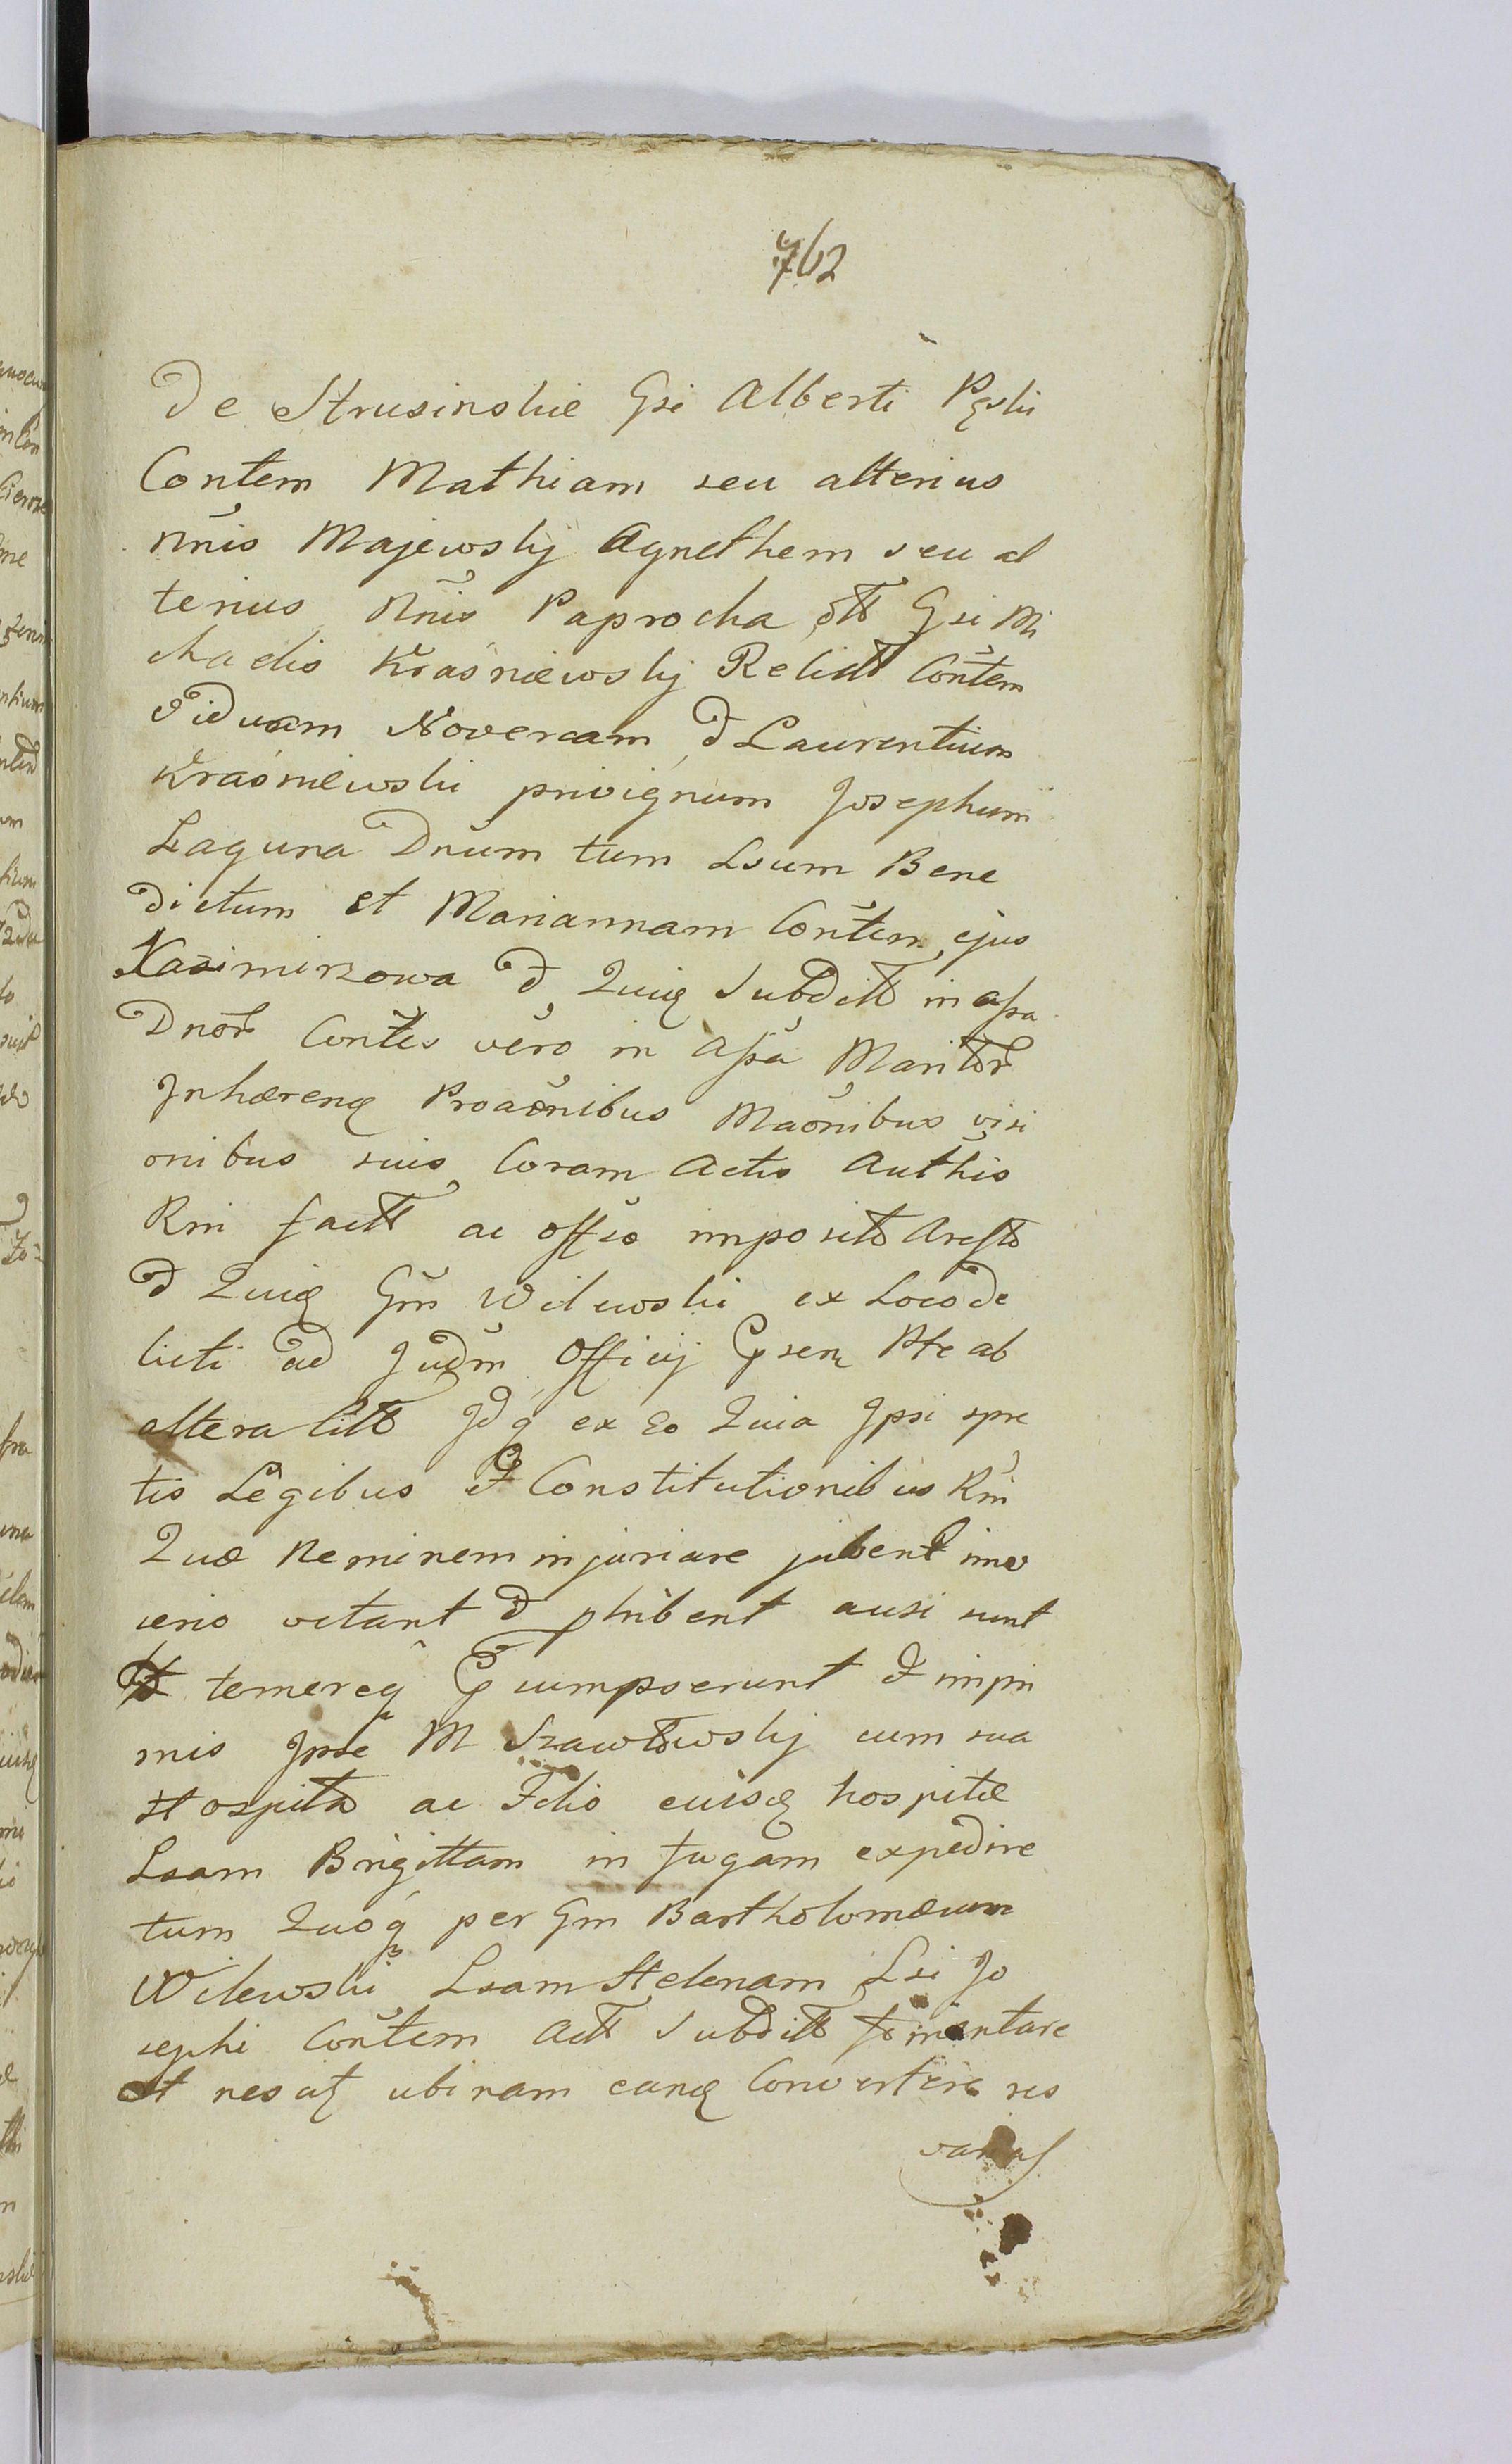 762
De Strusinskie Gsi Alberti Pęski
Contem Mathiam seu alterius
nnis Majewsky Agnethem seu al
terius Nnis Paprocka ōtt Gsi Mi
chaelis Krasniewsky Relictt Contem
Viduam Novercam & Laurentium
Krasniewski privignum Josephum
Laguna Dnum tum Lsum Bene
dictum et Mariannam Contem ejus
Kazimirzowa & Quię Subditt in assa
Dnor Contes vero in Assa Maritor
Inhærenę Proaonibus Maonibus visi
onibus suis Coram Actis Authis
Rni factt ac offso imposito Aresto
& Quię Gm Wilewski ex Loco de
licti ad Judm Officij Psen Pte ab
altera litt Idq ex eo Quia Ipsi spre
tis Legibus & Constitutionibus Rni
Quæ Neminem injuriare jubent imo
serio vetant & phibent ausi sunt
temereq Psumpserunt & impri
mis Ipse M Szawłowsky cum sua
Hospita ac Filio euisdę hospitæ
Lsam Brigittam in fugam expedire
tum Quoq per Gm Bartholomæum
Wilewski Lsam Helenam Lsi Jo
sephi Contem Actt Subditt fomentare
et nesatę ubinam eandę Convertere res